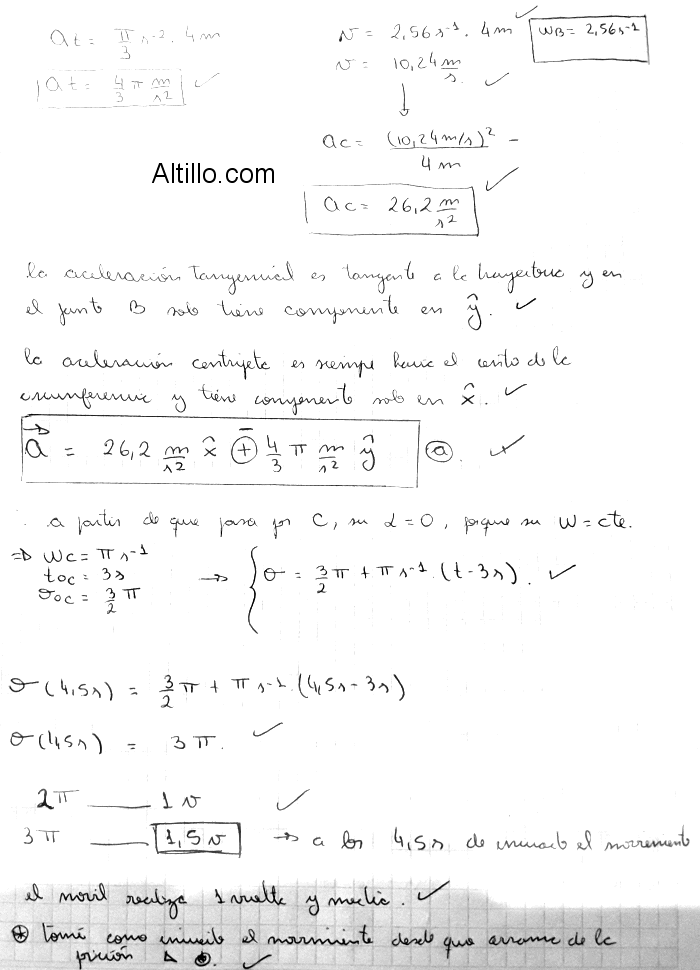 at = π/3 s⁻² . 4m
at = 4/3 π m/s² ✓
v = 2,56 s⁻¹ . 4m ✓
WB = 2,56 s⁻¹
v = 10,24 m/s ✓
↓
ac = (10,24 m/s)² / 4 m -
Altillo.com
ac = 26,2 m/s² ✓
la aceleración tangencial es tangente a la trayectoria y en
el punto B solo tiene componente en ŷ. ✓
la aceleración centrípeta es siempre hacia el centro de la
circunferencia y tiene componente solo en x̂. ✓
a⃗ = 26,2 m/s² x̂ ∓ 4/3 π m/s² ŷ (a).
a partir de que pasa por C, su α = 0, porque su W = cte.
⇒ Wc = π s⁻¹
toc = 3s
σoc = 3/2 π
→ { σ = 3/2 π + π s⁻¹ . (t - 3s). ✓
σ (4,5s) = 3/2 π + π s⁻¹ . (4,5s - 3s)
σ (4,5s) = 3 π. ✓
2π —— 1 v ✓
3π —— 1,5 v → a los 4,5s de iniciado el movimiento
el movil realiza 1 vuelta y media. ✓
⊛ tomé como iniciado el movimiento desde que arranca de la